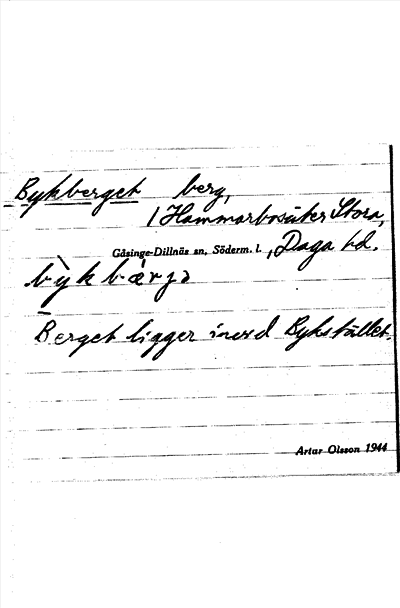 Bykberget berg,
/ Hammarbosäter Stora,
Gåsinge-Dillnäs sn, Söderm. l. , Daga hd.
bỳkbæ̀rjə
Berget ligger invid Bykstället.
Artur Olsson 1944